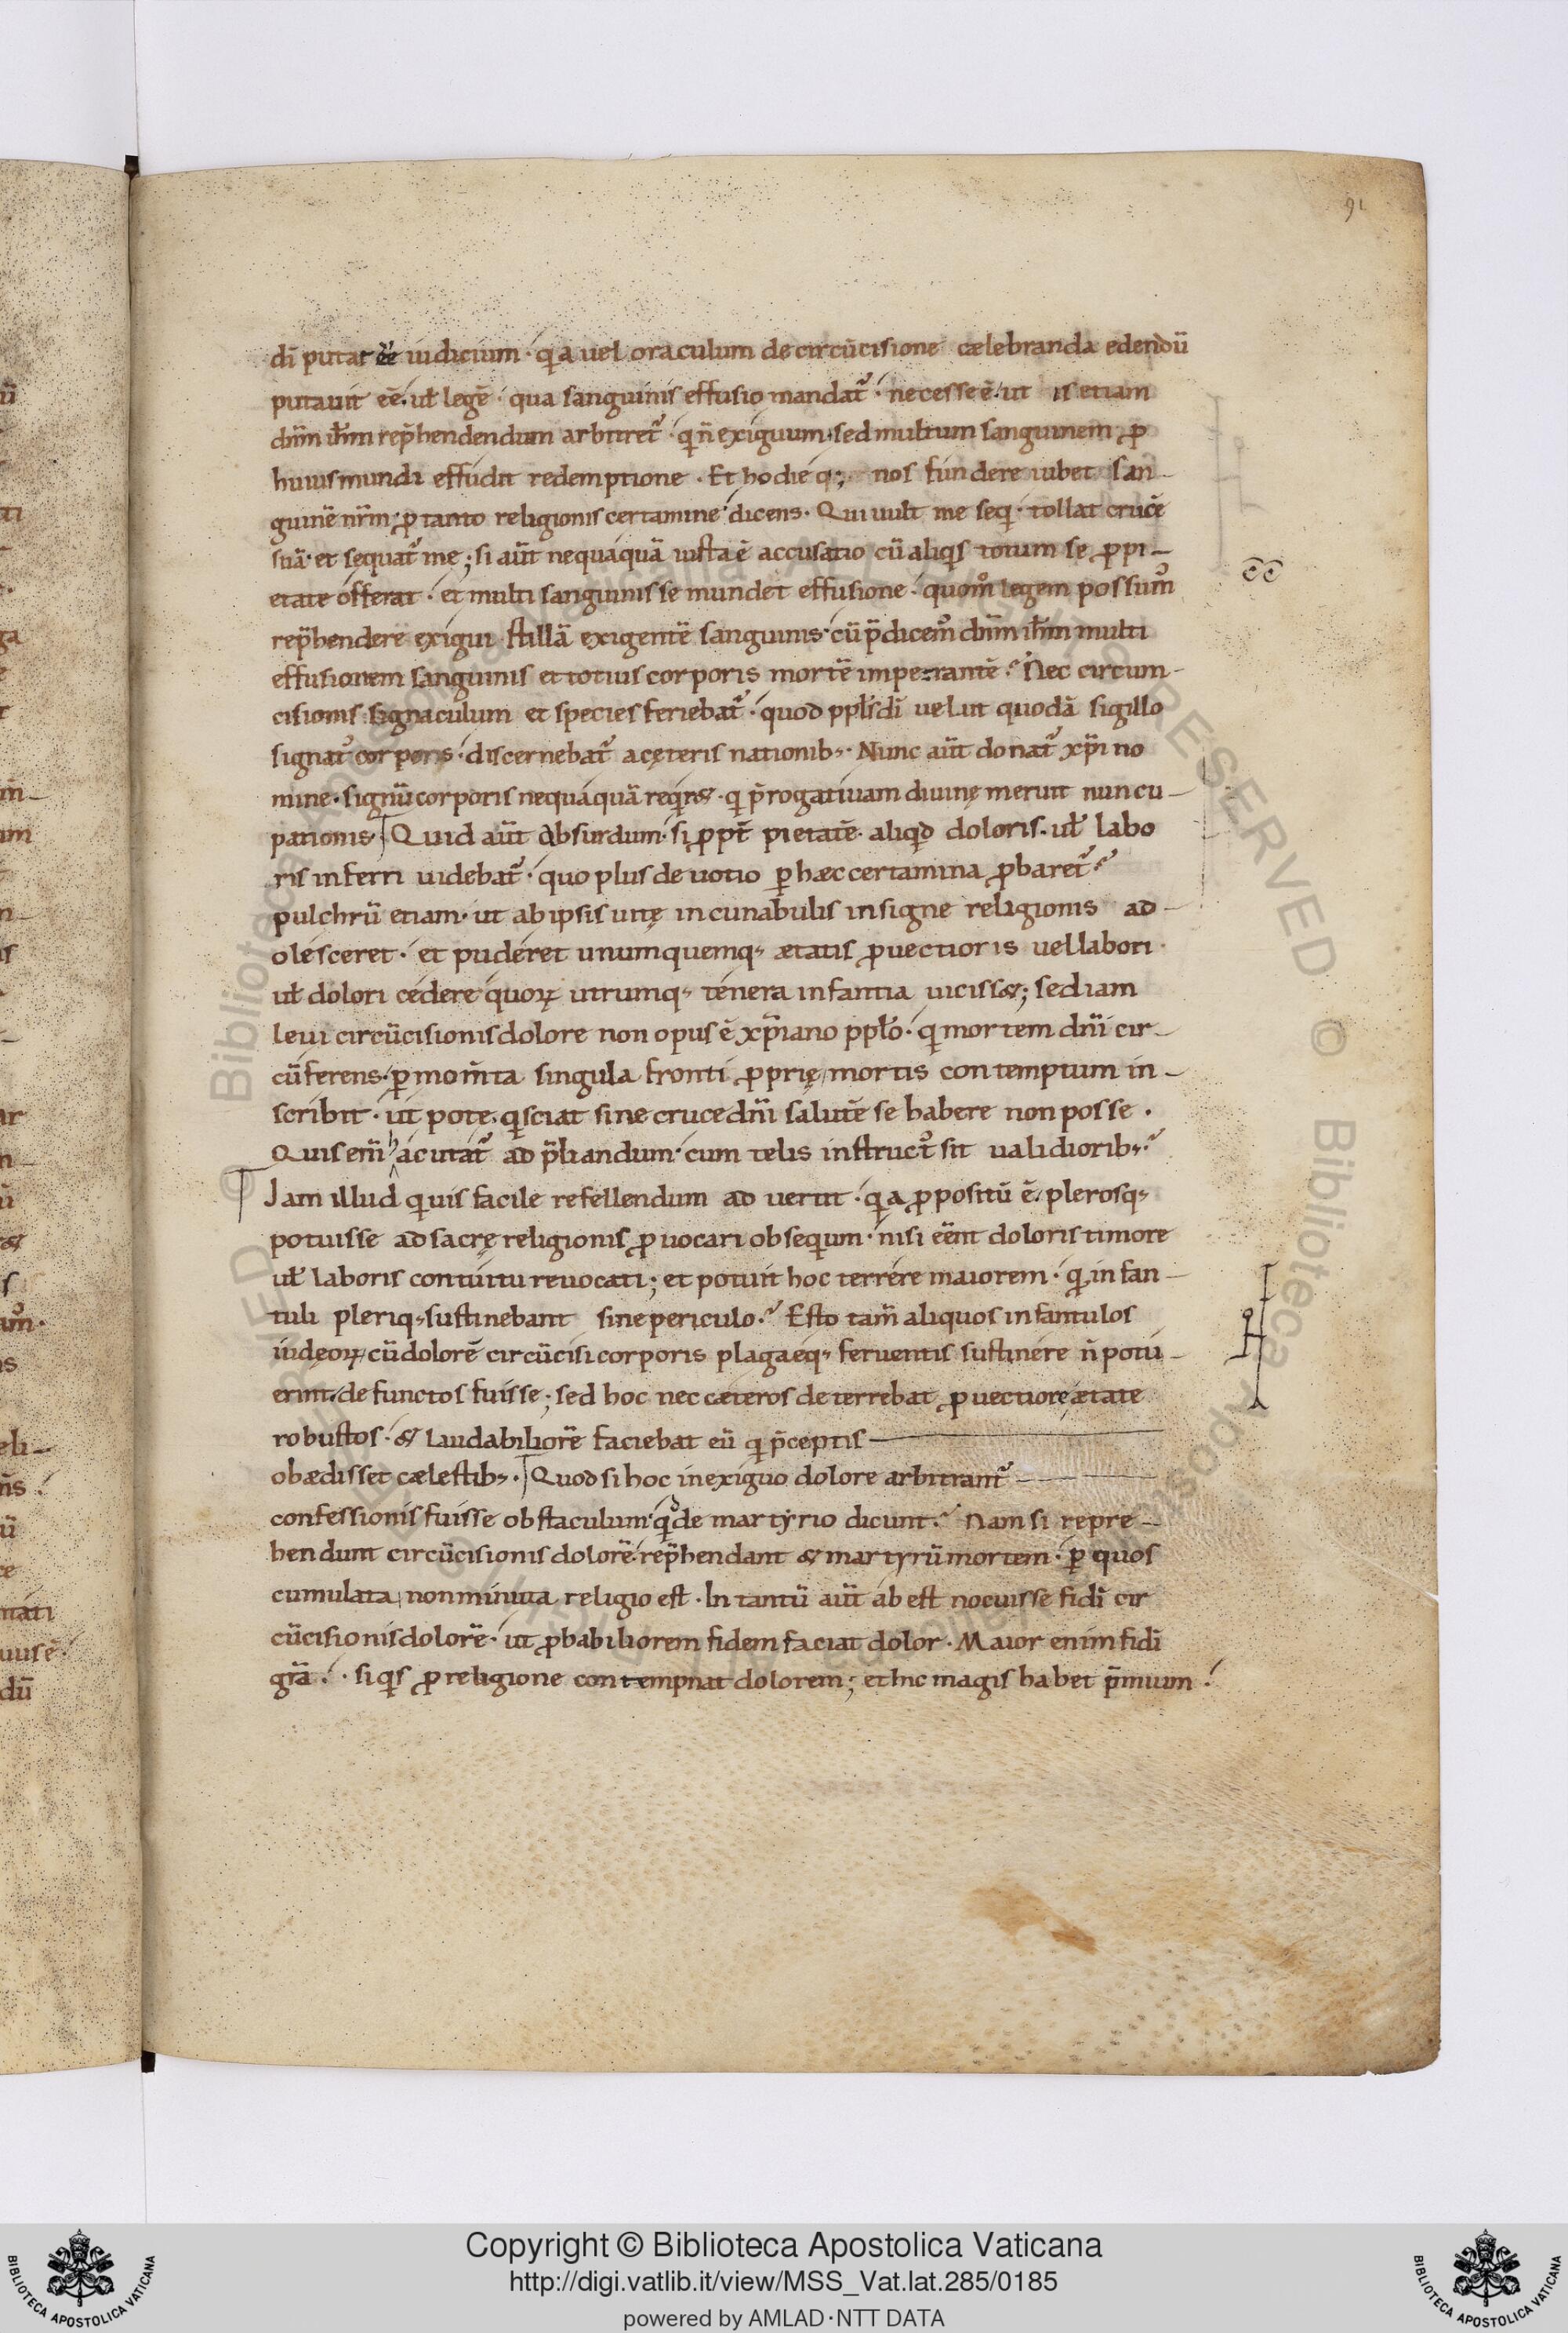 91
dī putat eē iudicium · qa uel oraculum de circūcisione caelebranda edendū
putauit eē · uł legē · qua sanguinis effusio mandat᷑ · necesse ē · ut is etiam
dn̄m ih̄m rep̄hendendum arbitret᷑ · qi n̄ exiguum · sed multum sanguinem ꝓ
huius mundi effudit redemptione · Et hodieq; nos fundere iubet san-
guinē nr̄m ꝓ tanto religionis certamine dicens · Qui uult me seqi · tollat crucē
suā · et sequat᷑ me ; si aūt nequaquā iusta ē accusatio cū aliqis totum se ꝓ pi-
etate offerat · et multi sanguinis se mundet effusione · quomͦ legem possum᷒
rep̄hendere exigui stillā exigentē sanguinis · cū p̄dicem᷒ dn̄m ih̄m multi
effusionem sanguinis et totius corporis mortē imperantē · Nec circum-
cisionis signaculum et species feriebat᷑ · quod ppłs dī uelut quodā sigillo
signat᷒ corporis · discernebat᷑ a cęteris nationib; · Nunc aūt donat᷑ xp̄i no
mine · signū corporis nequaquā reqir& · qi p̄rogatiuam diuinę meruit nuncu-
pationis · Quid aūt absurdum · si ꝓpt̄ pietatē · aliqid doloris · uł labo
ris inferri uidebat᷑ · quo plus deuotio ꝑ haec certamina ꝓbaret᷑
pulchrū etiam · ut ab ipsis uitę incunabulis insigne religionis ad-
olesceret · et puderet unumquemq; aetatis ꝓuectioris uel labori ·
uł dolori cedere quoꝝ utrumq; tenera infantia uiciss& ; sed iam
leui circūcisionis dolore non opus ē xp̄iano ppło · qi mortem dn̄i cir-
cūferens · ꝑ mom̄ta singula fronti ꝓprię mortis contemptum in-
scribit · ut pote qi sciat sine cruce dn̄i salutē se habere non posse ·
Quis em̄ hac utat᷑ ad p̄liandum · cum telis instruct᷒ sit ualidiorib; ·
Iam illud quis facile refellendum aduertit · qa ꝓpositū ē · plerosq;
potuisse ad sacrę religionis ꝓuocari obsequium · nisi eēnt doloris timore
uł laboris contuitu reuocati ; et potuit hoc terrere maiorem · qi infan-
tuli pleriq; sustinebant sine periculo · Esto tam̄ aliquos infantulos
iudęoꝝ cū dolorē circūcisi corporis plagaeq; feruentis sustinere n̄ potu-
erint · defunctos fuisse ; sed hoc nec caeteros deterrebat ꝓuectiore aetate
robustos · & laudabiliorē faciebat eū qi p̄ceptis
obaedisset caelestib; · Quod si hoc in exiguo dolore arbitrant᷑
confessionis fuisse obstaculum · qid de martyrio dicunt · Nam si repre-
hendunt circūcisionis dolorē · rep̄hendant & martyrū mortem · ꝑ quos
cumulata non minuta religio est · In tantū aūt abest nocuisse fidī cir
cūcisionis dolorē · ut ꝓbabiliorem fidem faciat dolor · Maior enim fidī
gr̄a · si qis ꝓ religione contempnat dolorem ; et hic magis habet p̄mium
Copyright © Biblioteca Apostolica Vaticana
http://digi.vatlib.it/view/MSS_Vat.lat.285/0185
powered by AMLAD·NTT DATA